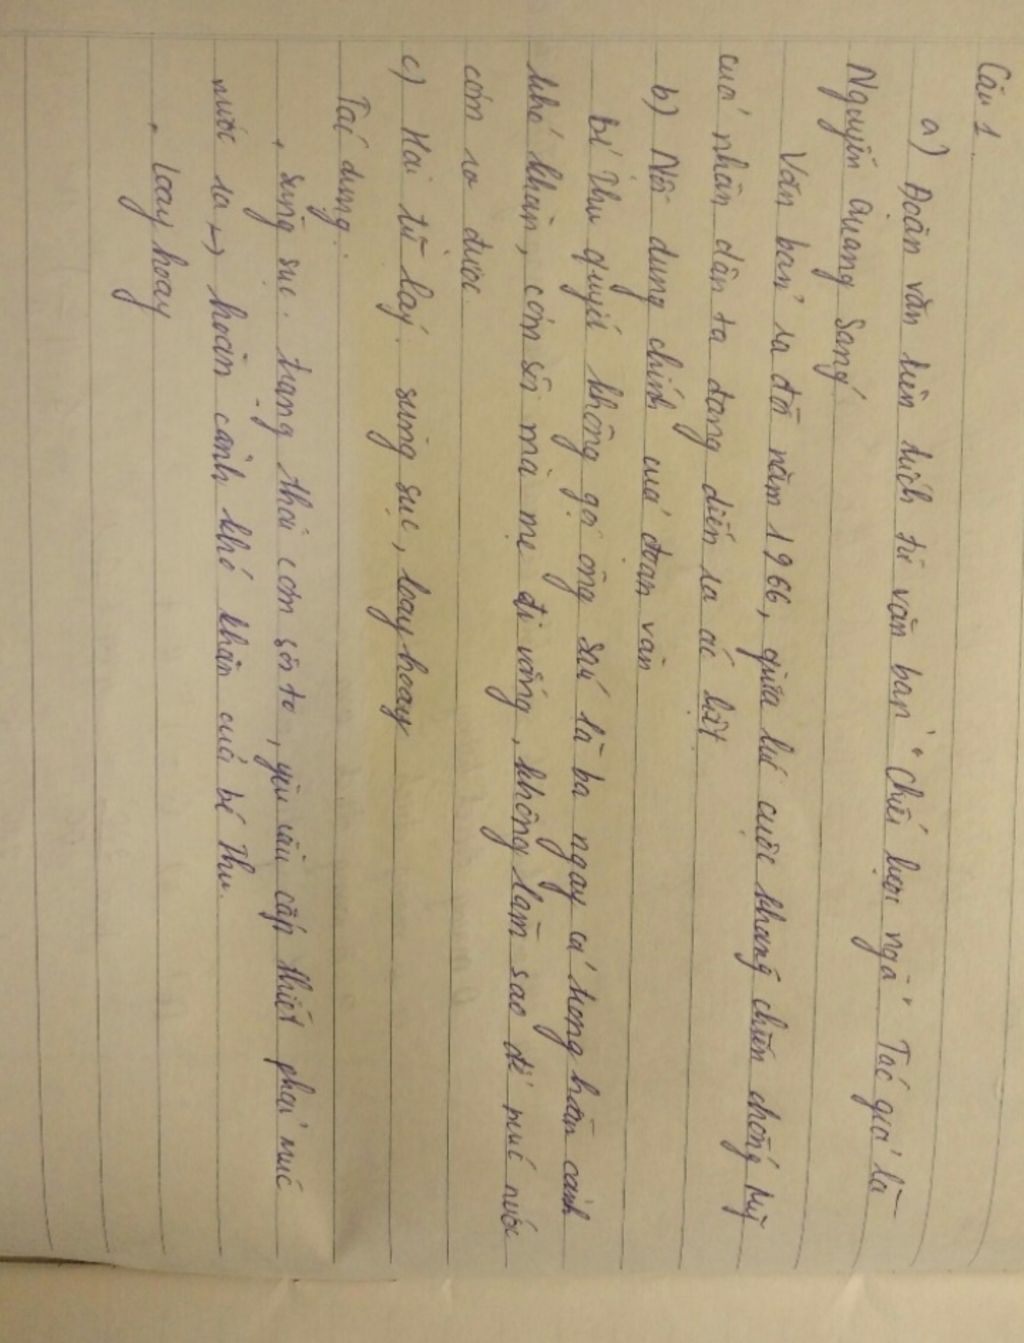 Câu 1.
a) Đoạn văn trên trích từ văn bản "Chiếc lược ngà" Tác giả là
Nguyễn Quang Sáng
Văn bản ra đời năm 1966, giữa lúc cuộc kháng chiến chống Mỹ
của nhân dân ta đang diễn ra ác liệt.
b) Nội dung chính của đoạn văn
bé Thu quyết không gọi ông Sáu là ba ngay cả trong hoàn cảnh
khó khăn, cơm sôi mà mẹ đi vắng, không làm sao để múc nước
cơm ra được.
c) Hai từ láy: sùng sục, loay hoay
Tác dụng:
, sùng sục: trạng thái cơm sôi to, yêu cầu cấp thiết phải múc
nước ra, → hoàn cảnh khó khăn của bé Thu.
, loay hoay